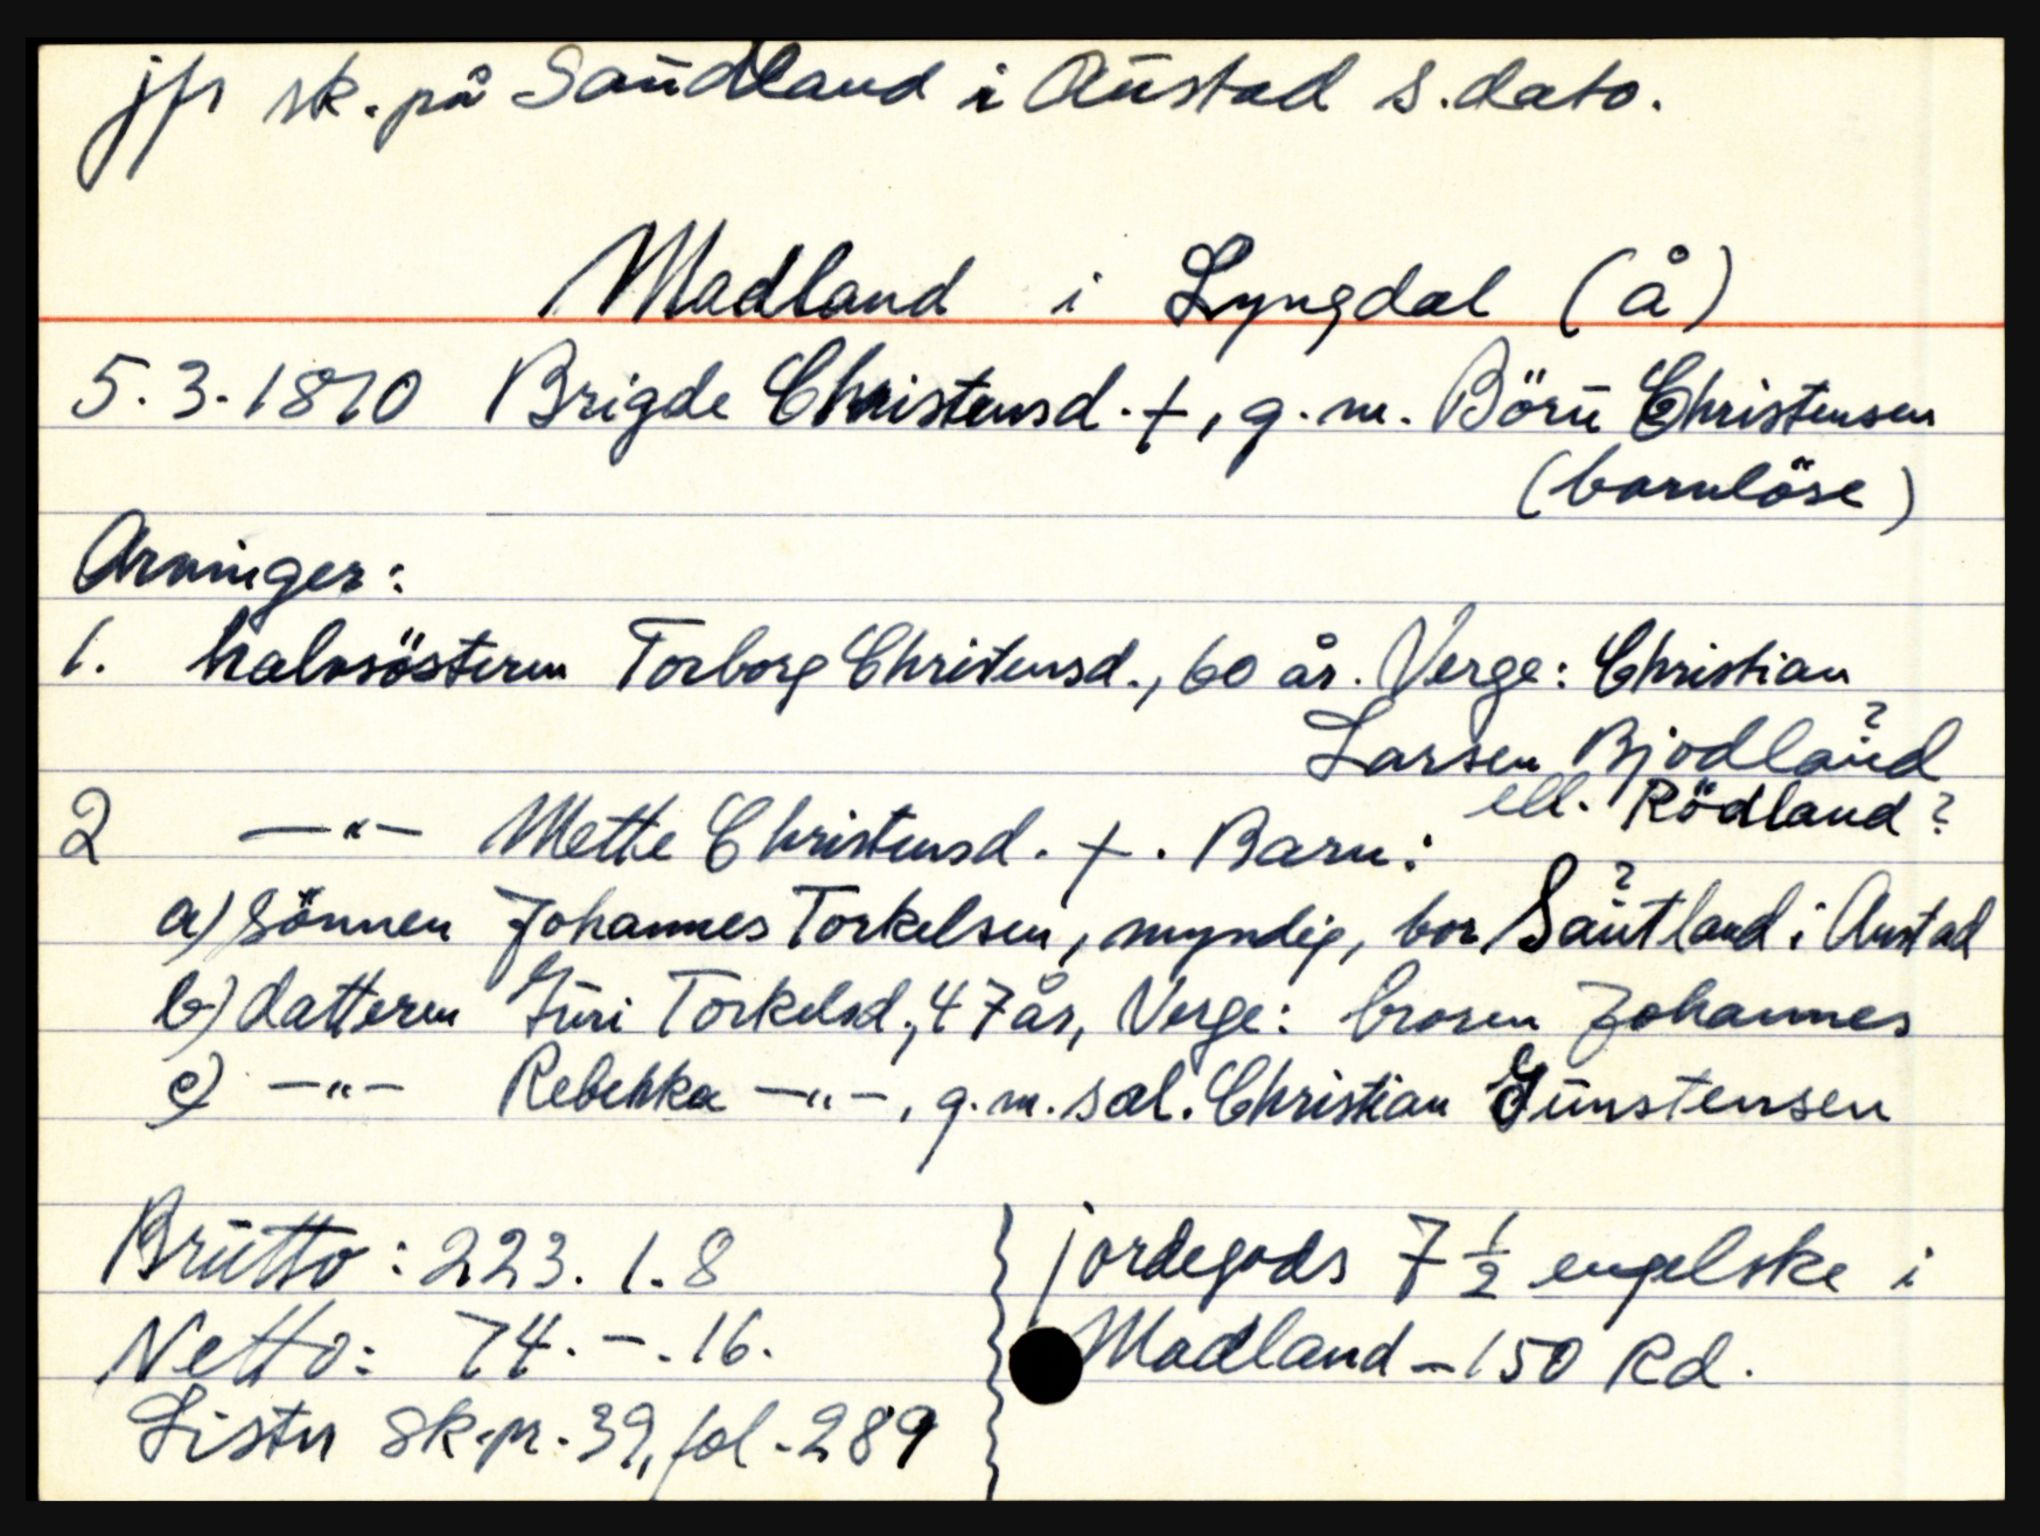 jfr sk. på Saudland i Austad s. dato.
Madland i Lyngdal (Å)
5.3.1810 Brigde Christensd. †, g.m. Böru Christensen
(barnlöse)
Arvinger:
1. halvsösteren Torborg Christensd., 60 år. Verge: Christian
Larsen Bjodland ?
ell. Rödland?
2 —"— Mette Christensd. †. Barn:
a) sönnen Johannes Torkelsen, myndig, bor Sautland ? i Austad
b) datteren Guri Torkelsd., 47 år, Verge: broren Johannes
c) —"— Rebekka —"—, g.m. sal. Christian Gunstensen
Brutto: 223. 1. 8
Netto: 74. – . 16.
Lister sk.pr. 39, fol. 289
jordegods 7 1/2 engelske i
Madland – 150 Rd.